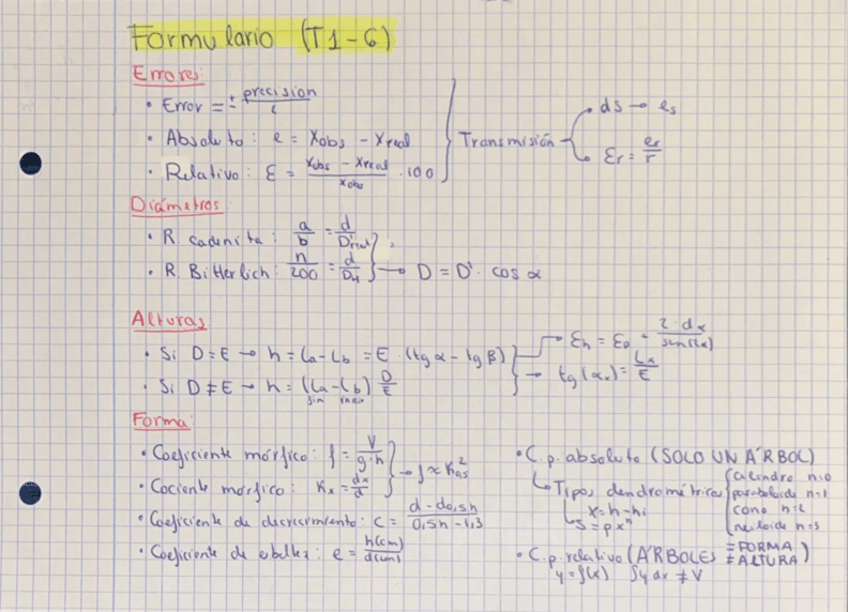 Formulario (T1-6)
Errores:
• Error = ± precision / L
• Absoluto: e = Xobs - Xreal
• Relativo: Ɛ = Xobs - Xreal / Xobs · 100
Transmisión
ds → es
Ɛr = er / r
Diámetros
• R. Cadenita: a/b = d/D'real
• R Bitterlich: n/200 = d/DH → D = D' · cos α
Alturas
• Si D=E → h = La - Lb = E · (tg α - tg β)
• Si D≠E → h = (La - Lb) D/E
→ tg (αx) = Lx/E
Forma:
• Coeficiente mórfico: f = V / g·h
• Cociente mórfico: Kx = dx/d
→ f ≈ K²0,5
• Coeficiente de decrecimiento: C = d - d0,5h / 0,5h - 1,3
• Coeficiente de esbeltez: e = h(cm) / d(cm)
• C.p. absoluto (SOLO UN ÁRBOL)
↳ Tipos dendrométricos
cilindro n=0
paraboloide n=1
cono n=2
neiloide n=3
↳ X = h - hi
↳ S = px^n
• C.p. relativo (ÁRBOLES = FORMA ≠ ALTURA)
y = f(x) ∫y dx ≠ V